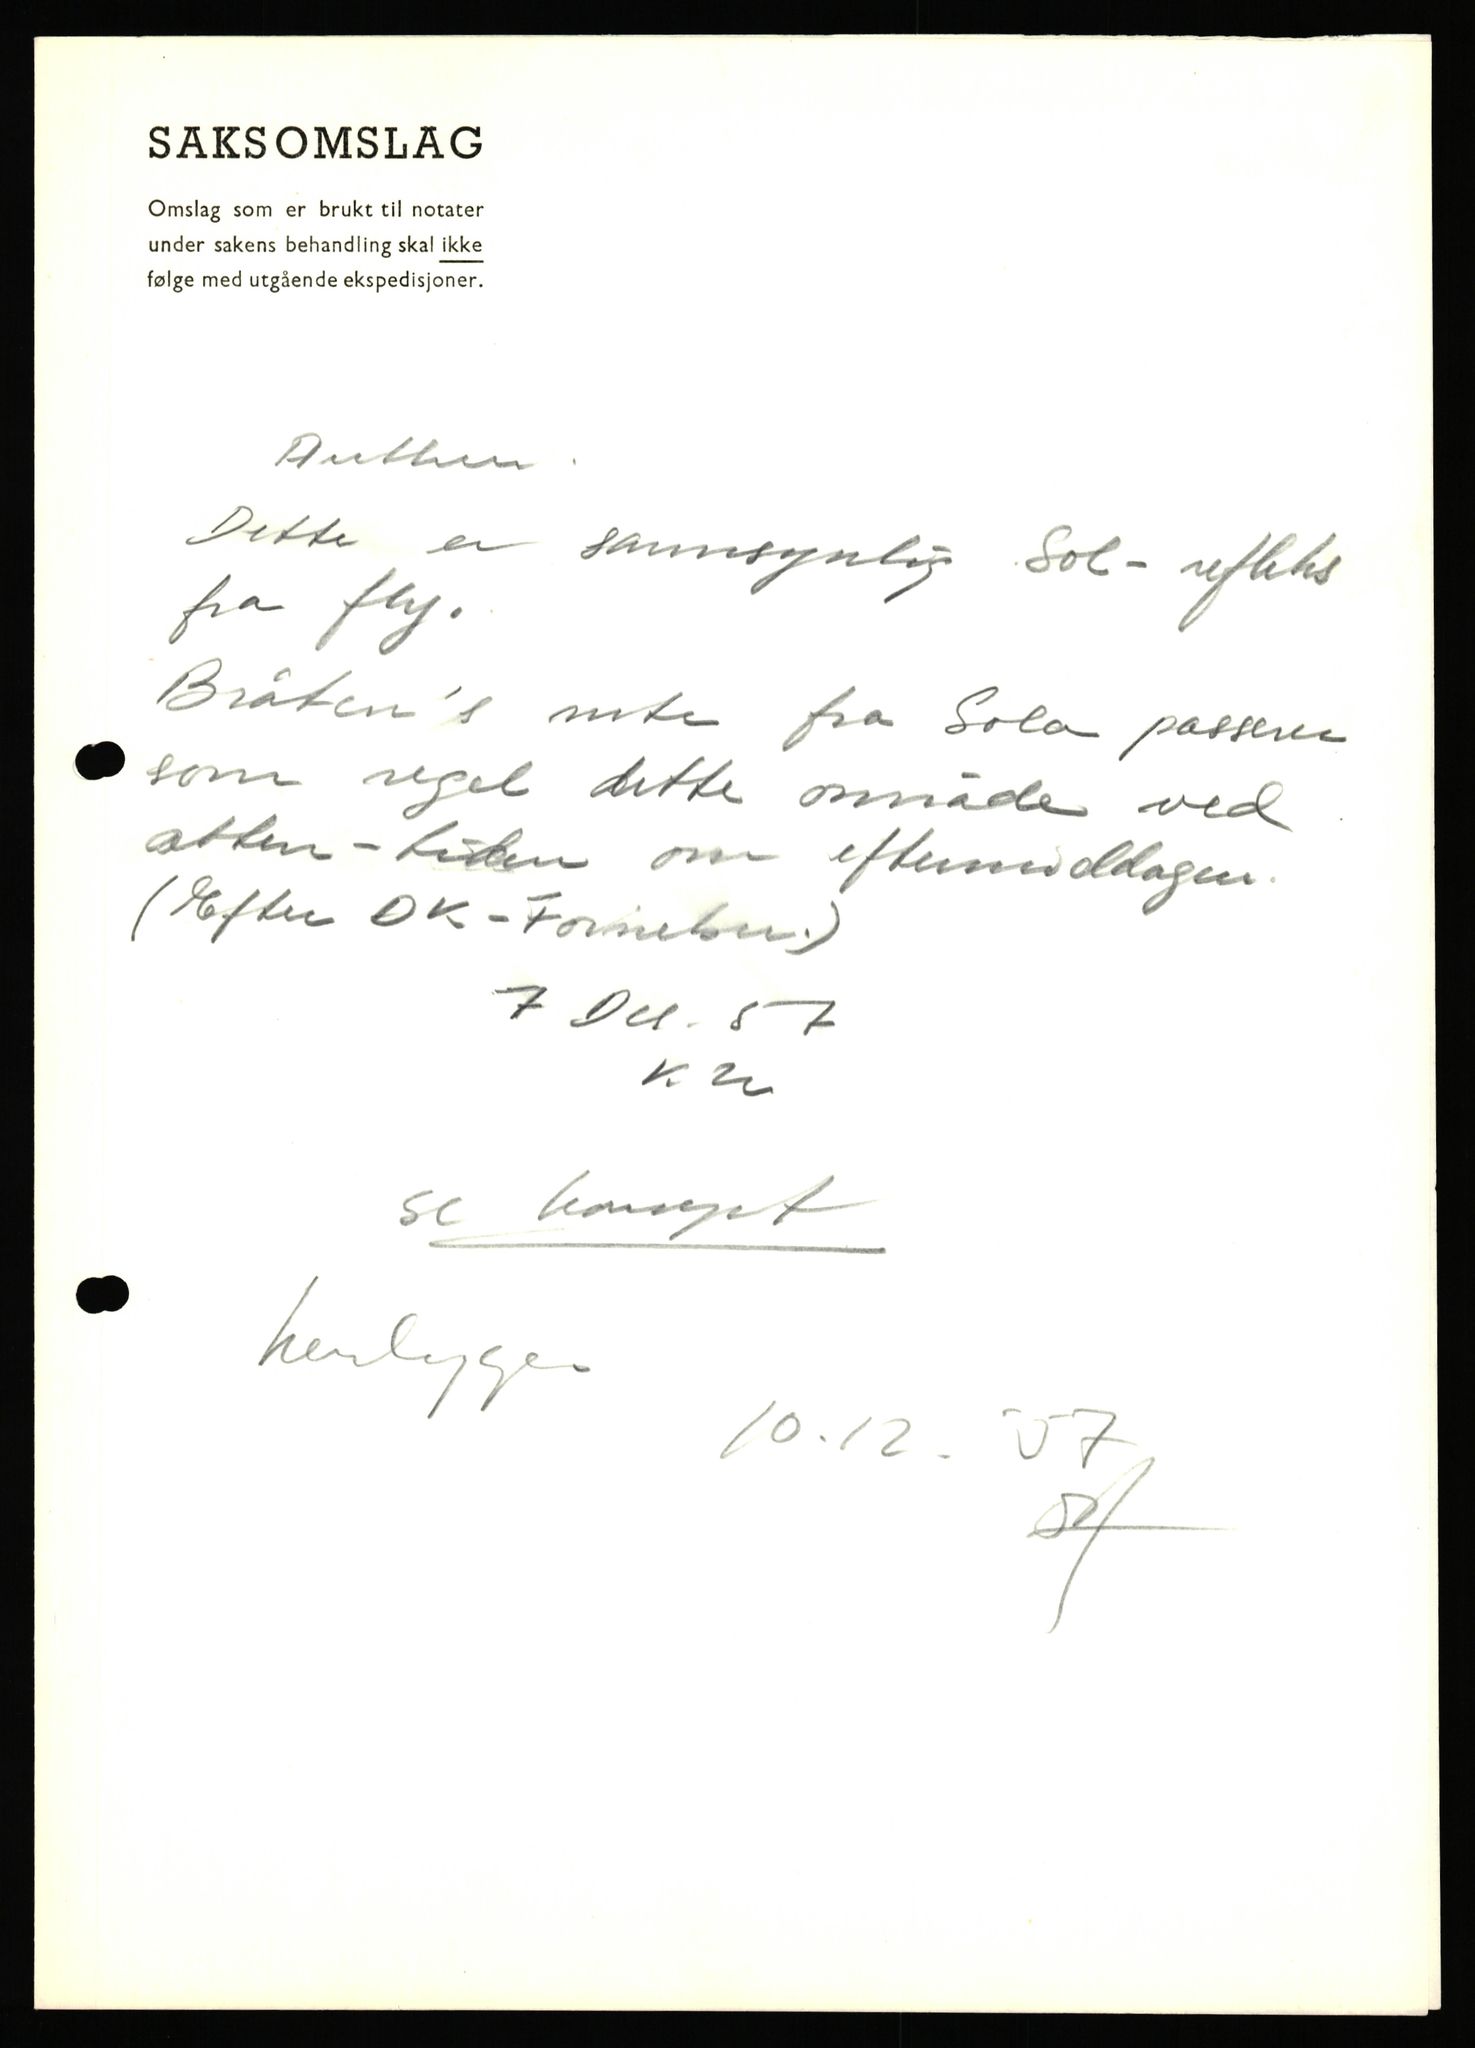 SAKSOMSLAG
Omslag som er brukt til notater
under sakens behandling skal ikke
følge med utgående ekspedisjoner.
Dette er sannsynlig Sol-refleks
fra fly.
Bråten's rute fra Sola passerer
som regel dette område ved
atten-tiden om eftermiddagen.
(Efter DK-Fornebu.)
7 Des. 57
se konsept
henlegges
10.12. 57